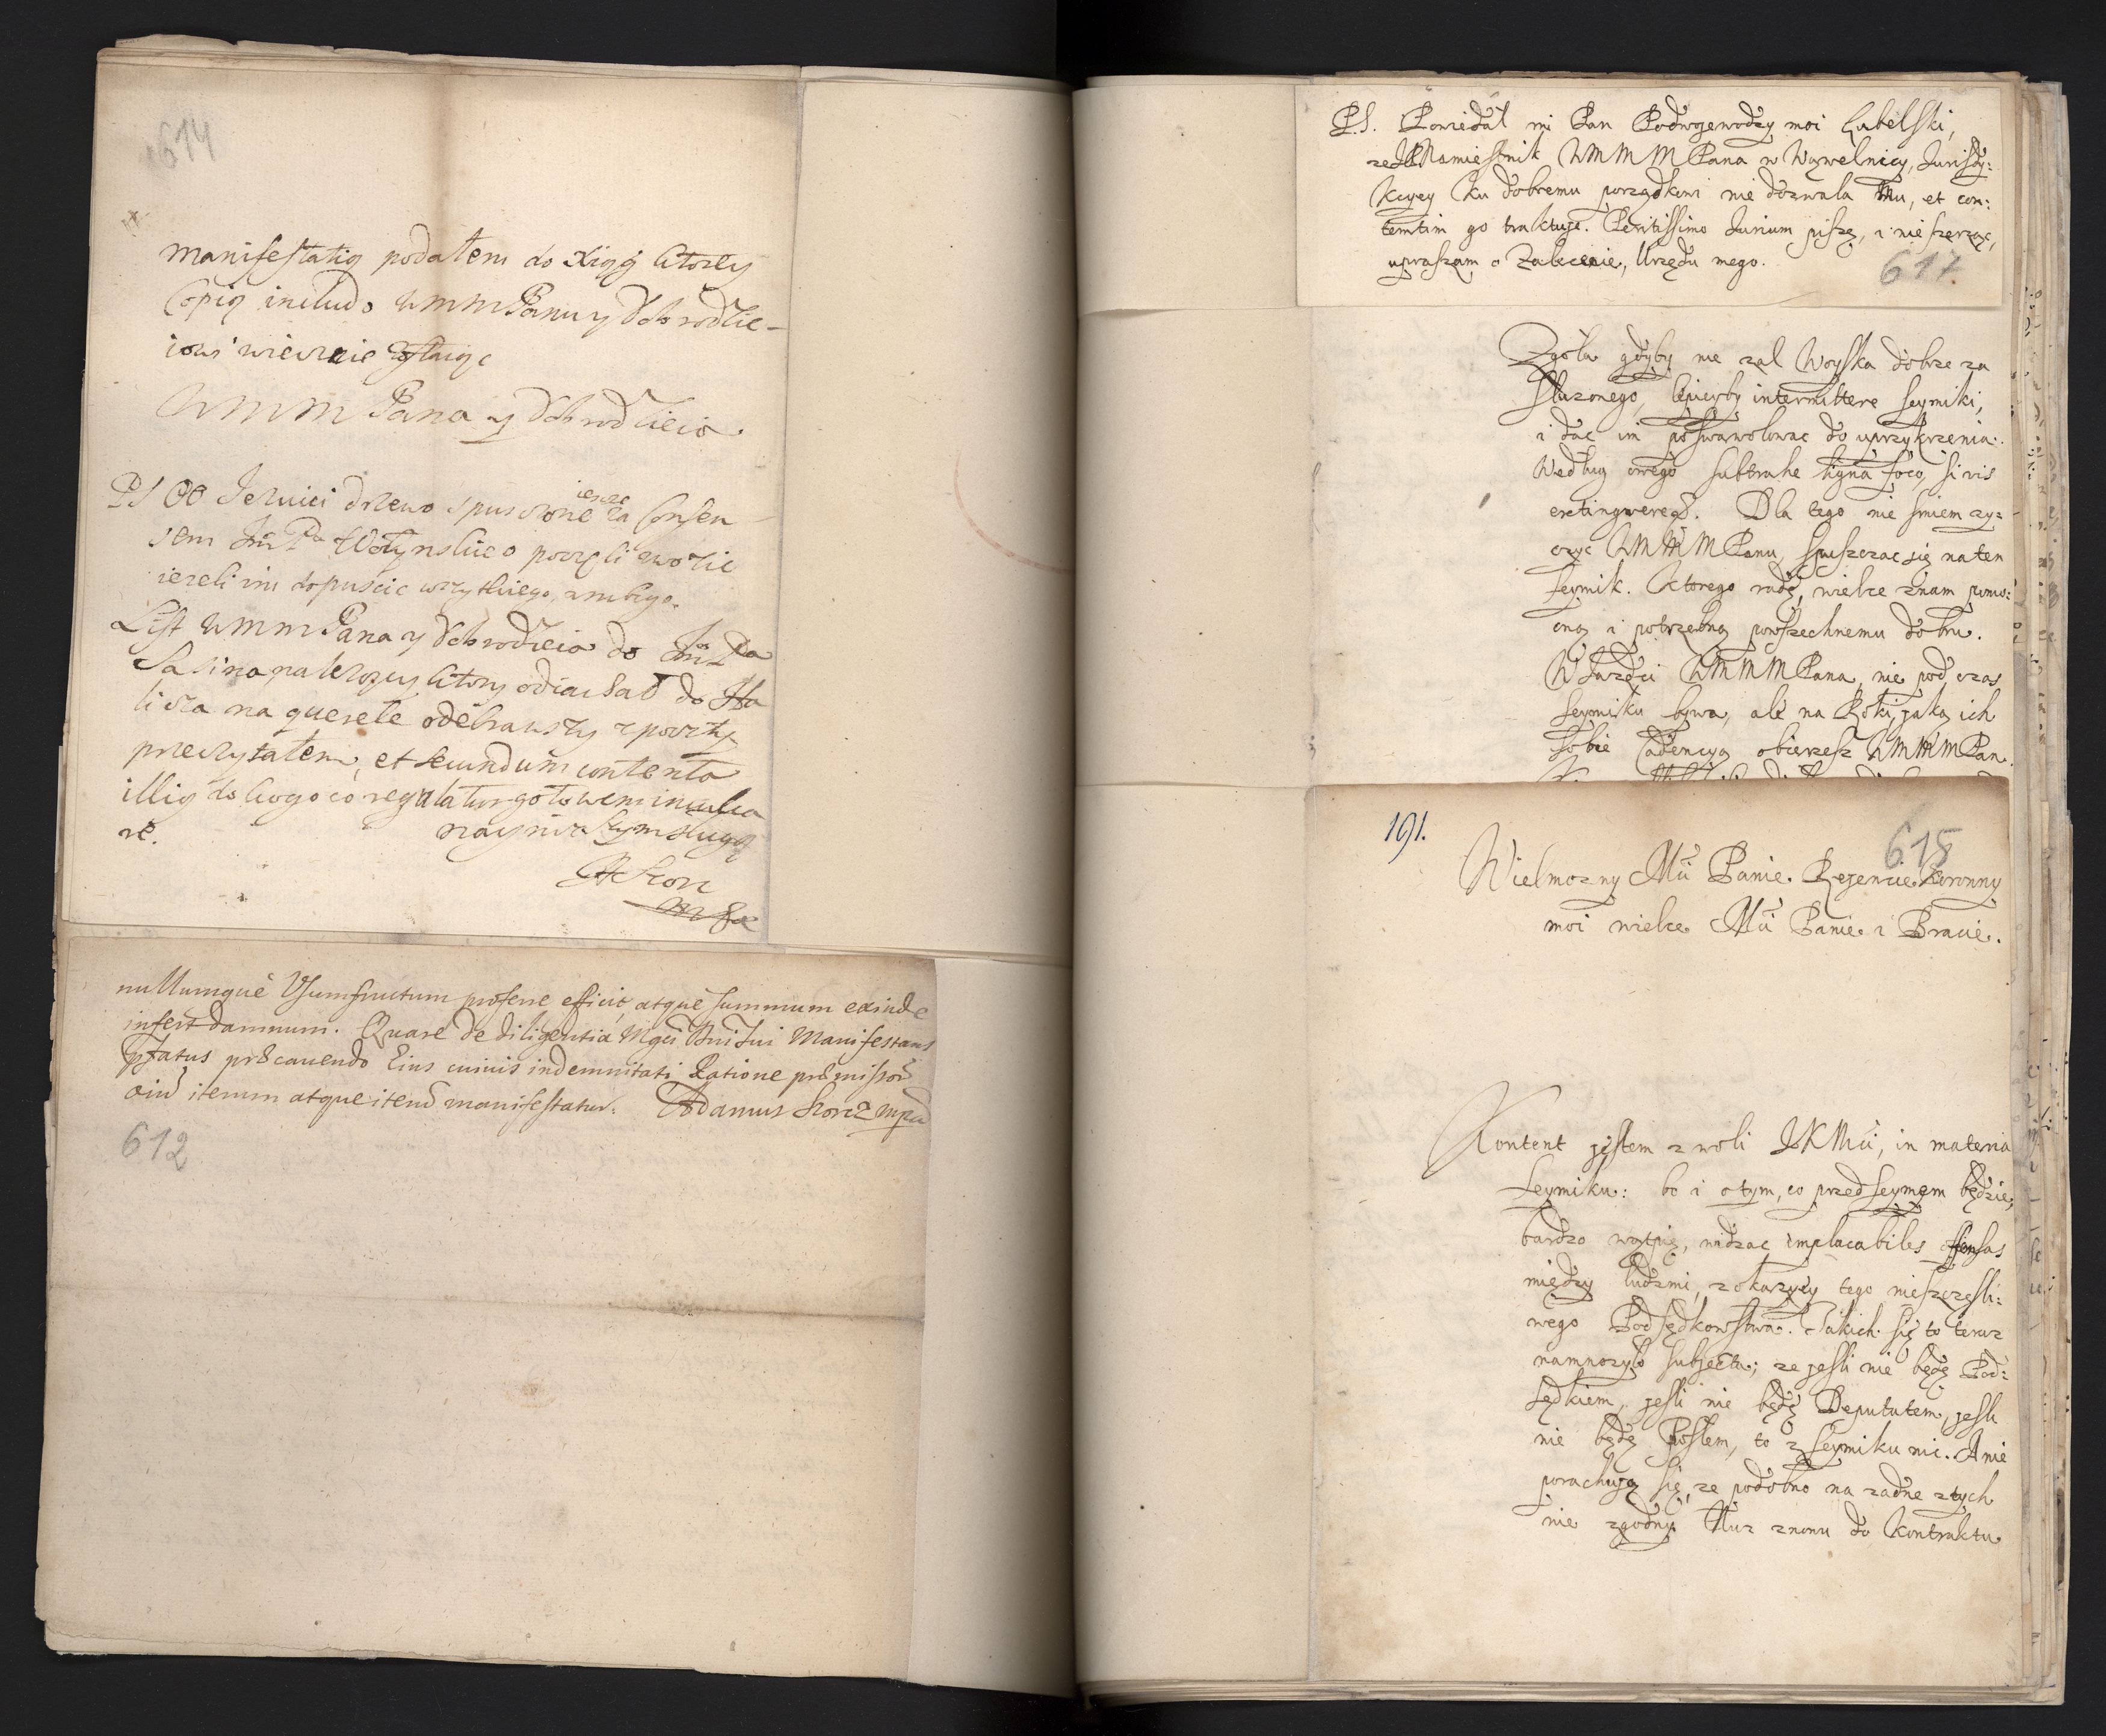 614
manifestatią podałem do Xiąg ktorey
Copią includo WMM Panu y Dobrodzie-
iowi wiecznie zostaiąc
WMM Pana y Dobrodzieia.
PS OO Jezuici drzewo spuszczone iescze za Consen
sem Jm Pa Wołynskie o poczęli zwozic
iezeli im dopuscic wszytkiego, ambigo.
List WMM Pana y Dobrodzieia do Jm Pa
odiachał do Ha
licza na querele odebrawszy z poczty
przeczytałem, et secundum contenta
illiq do kogo co regulatur gotowem inculca
re.
nayniszszym sługą
A Skorz
612
nullumque Usumfructum proferre efficit, atque summum exinde
infert damnum. Quare de diligentia Mgci Dni Sui Manifestans
pfatus præcavendo Eius cuiuis indemnitati Ratione præmissor
iterum atque iterum manifestatur. Adamus Skorz mpa
PS. Powiedał mi Pan Podwojewodzy moi Lubelski,
ze JP Namiestnik WMMM Pana w Wąwelnicy, Jurisdy:
kcyey ku dobremu porządkowi nie dozwala mu, et con:
temtim go traktuje. Peritissimo Jurium piszę, i nie szerząc,
upraszam o Zalecenie, Urzędu mego.
617
Zgoła gdyby nie zal Woyska dobrze za
słuzonego, lepieyby intermittere seymiki,
i dac im poswawolowac do uprzykrzenia.
Według owego subtrahe ligna foco, si vis
extingwere. Dla tego nie smiem zy:
czyc WMMM Panu, spuszczac się na ten
seymik. Ktorego radę, wielce znam pomo:
cną i potrzebną powszechnemu dobru.
WMMM Pana, nie pod czas
seymiku bywa, ale na Roki, jaką ich
sobie Cadencyą obierzesz WMMM Pan.
191.
618
Wielmozny Mći Panie Regencie Koronny
moi wielce Mći Panie i Bracie.
Kontent jestem z woli JKMći, in materia
Seymiku: bo i o tym, co przed seymem będzie,
bardzo wątpię, widząc implacabiles offensas
między ludzmi, z okazyey tego nieszczęsli:
wego Podsędkowstwa. Takich się to teraz
namnozyło subjecta; ze jesli nie będę Pod:
sędkiem, jesli nie będę Deputatem, jesli
nie będę Posłem, to z seymiku nic. A nie
porachują się, ze podobno na zadne z tych
nie zgodny. Nuz znowu do Kontraktu